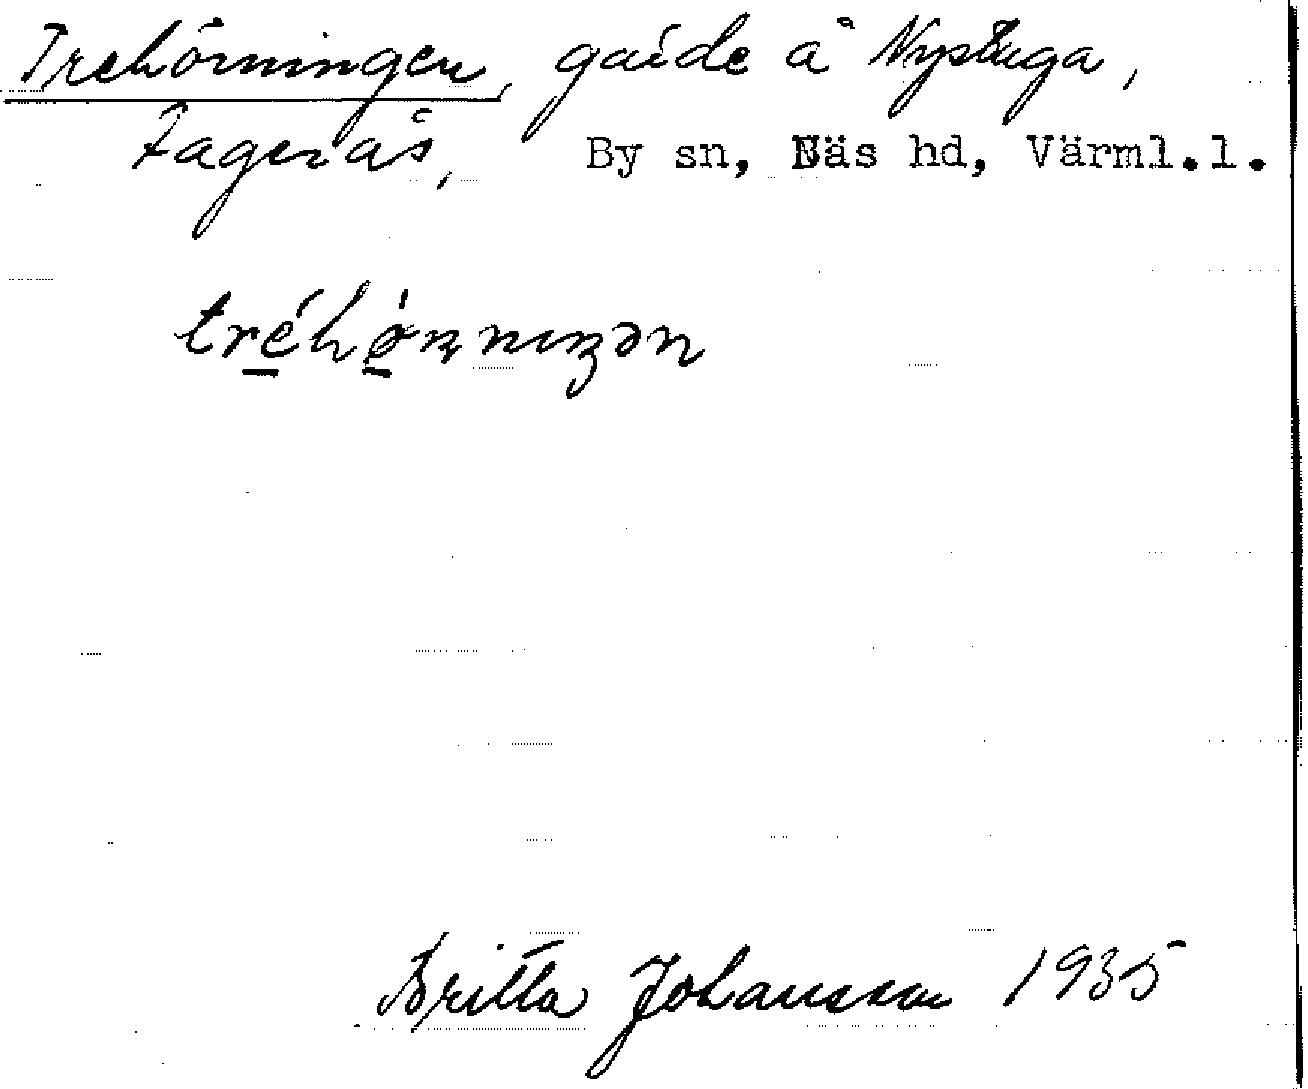 Trehörningen, gärde å Nystuga,
Fagerås, By sn, Näs hd, Värml.l.
Britta Johansson 1935